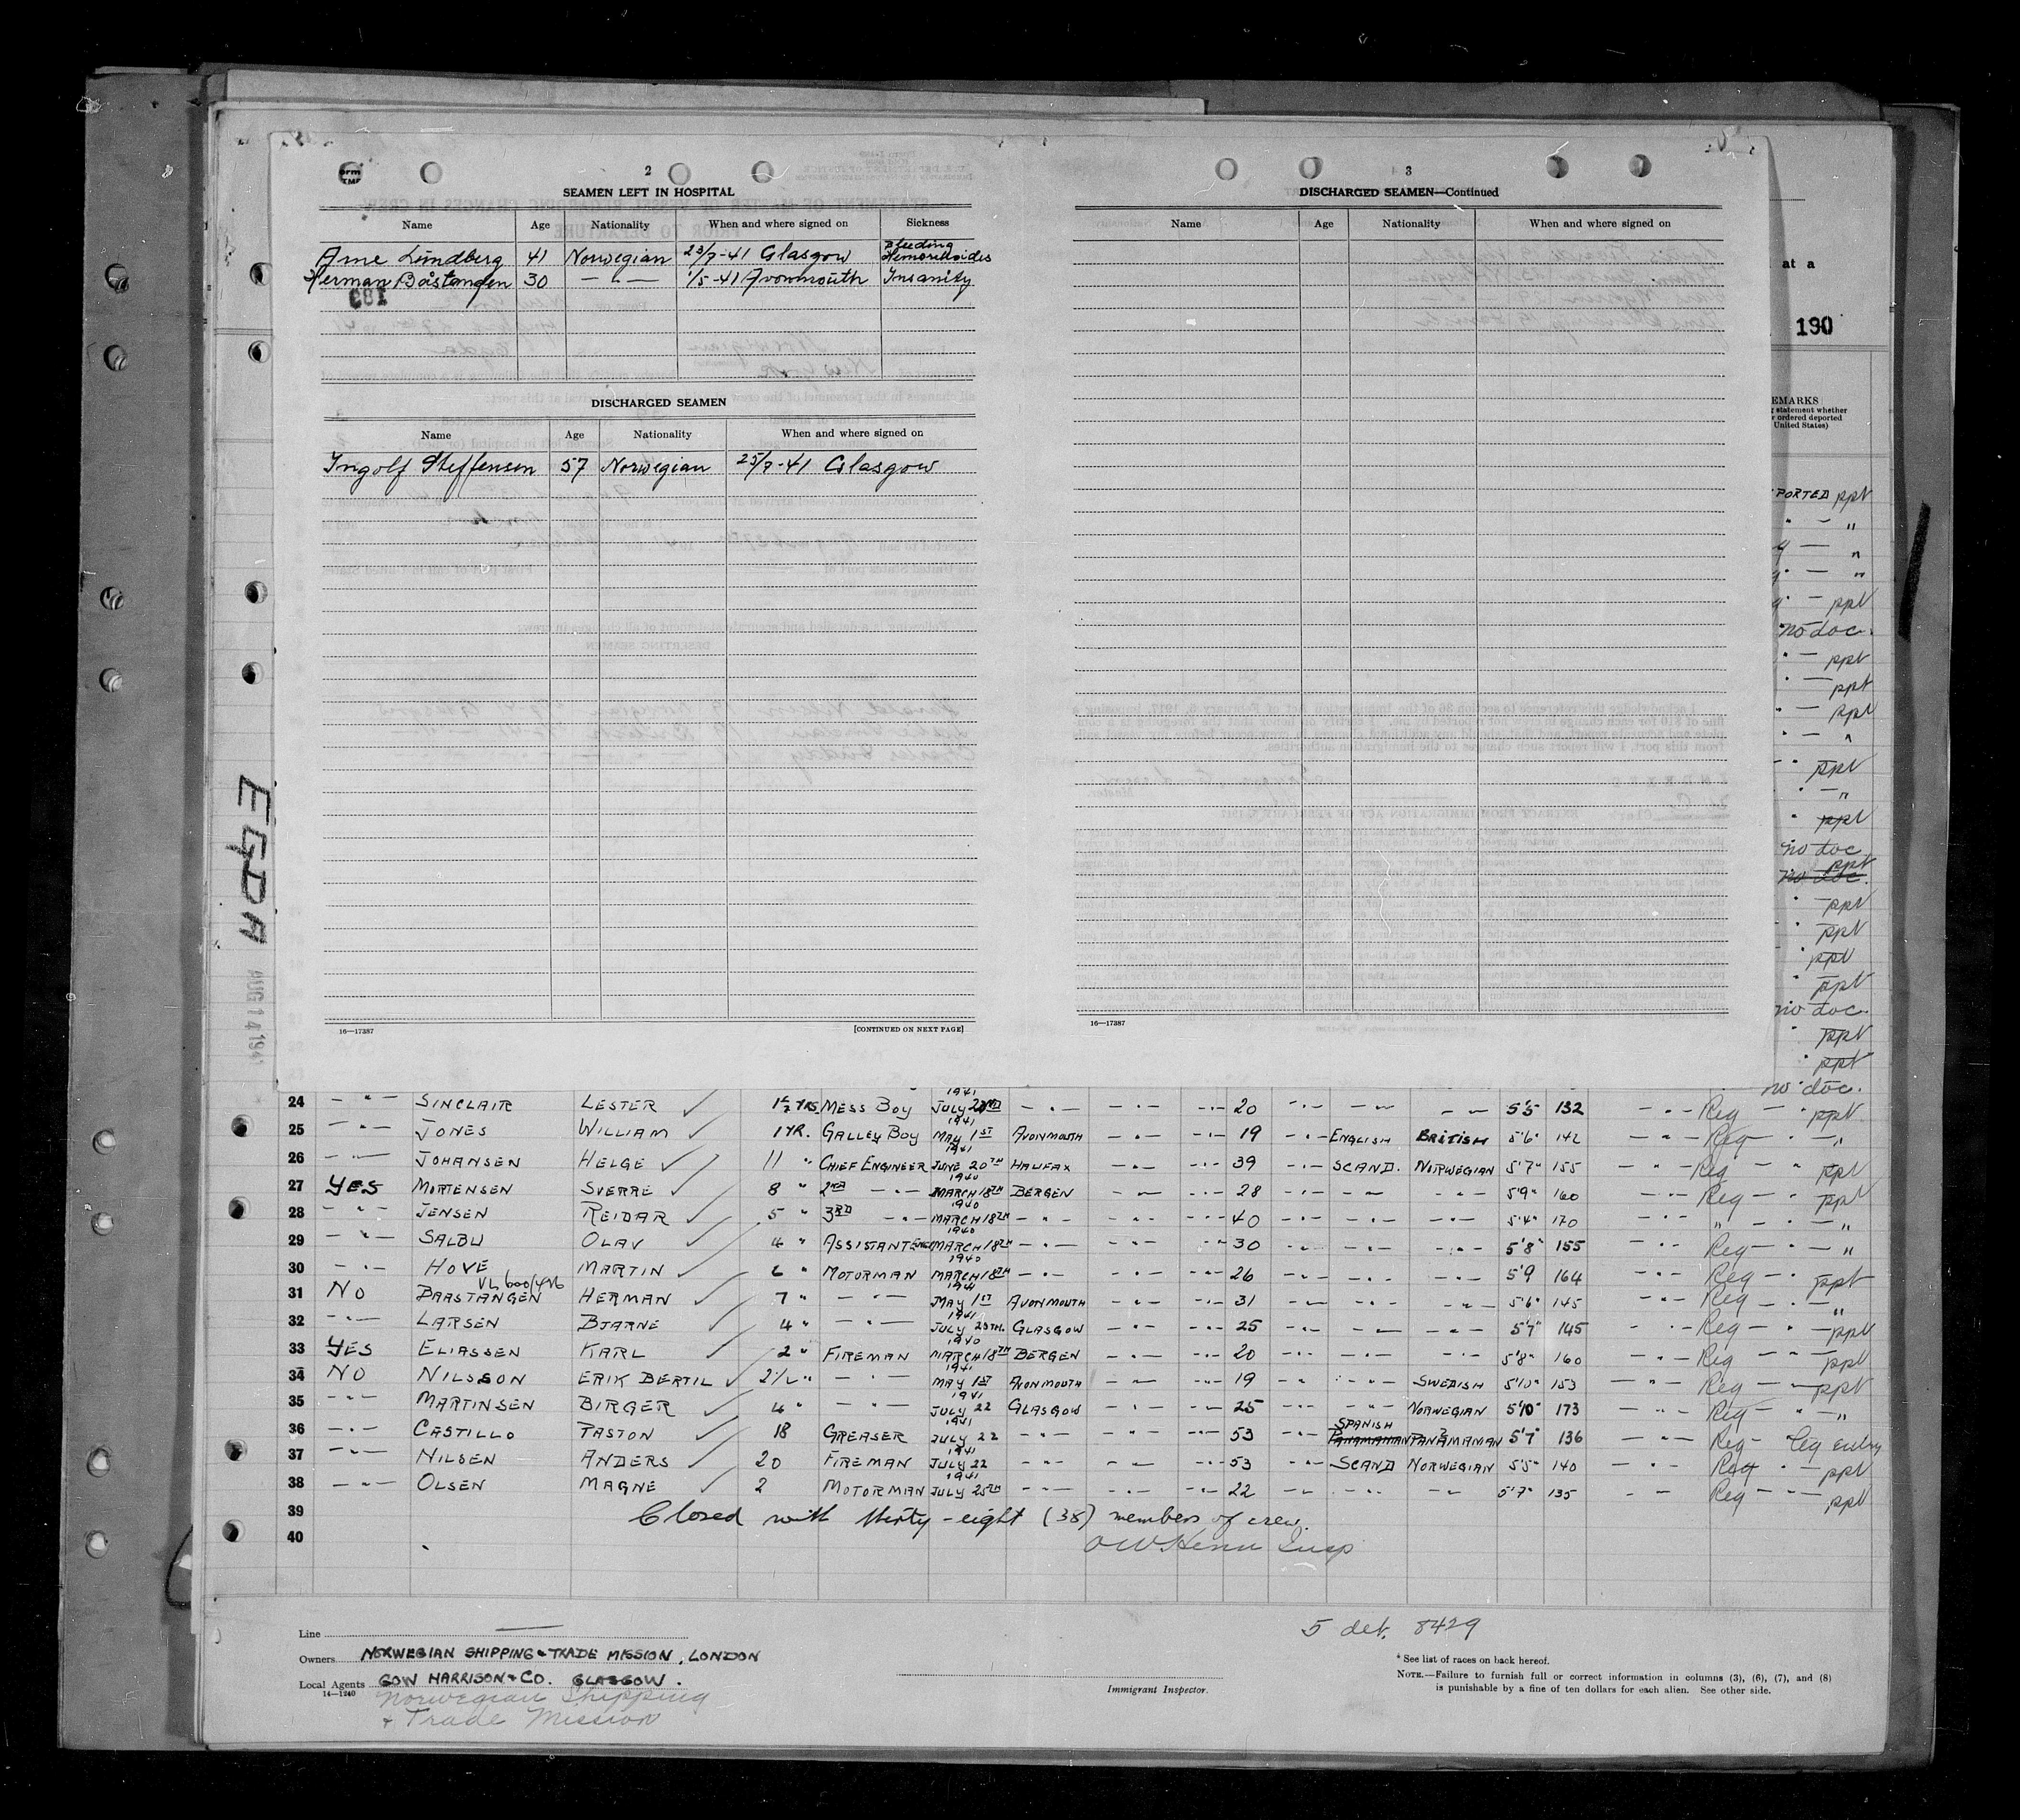 2
SEAMEN LEFT IN HOSPITAL
Name Age Nationality When and where signed on Sickness
Arne Lundberg 41 Norwegian 23/7-41 Glasgow Bleeding Hemorrhoides
Herman Båstangen 30 — " — 1/5-41 Avonmouth Insanity
DISCHARGED SEAMEN
Name Age Nationality When and where signed on
Ingolf Steffensen 57 Norwegian 25/7-41 Glasgow
16—17387 [CONTINUED ON NEXT PAGE]
3
DISCHARGED SEAMEN—Continued
Name Age Nationality When and where signed on
16—17387
at a
190
EMARKS
statement whether
r ordered deported
United States)
PORTED ppt
"
"
"
ppt
no doc.
ppt
ppt
ppt
"
ppt
"
ppt
no doc
ppt
no doc.
ppt
ppt
ppt
ppt
no doc.
ppt
ppt
no doc.
EGDA
AUG 14 194
24 - " - SINCLAIR LESTER ✓ 1½ YRS. MESS BOY 1941 JULY 23RD - " - - " - - " - 20 - " - - " - - " - 5'5 132 - " - Reg - " ppt
25 - " - JONES WILLIAM ✓ 1 YR. GALLEY BOY 1941 MAY 1ST AVONMOUTH - " - - " - 19 - " - ENGLISH BRITISH 5'6" 142 - " - Reg - " - "
26 - " - JOHANSEN HELGE ✓ 11 " CHIEF ENGINEER 1941 JUNE 20TH HALIFAX - " - - " - 39 - " - SCAND. NORWEGIAN 5'7" 155 - " - Reg - " ppt
27 YES MORTENSEN SVERRE ✓ 8 " 2ND - " - 1940 MARCH 18TH BERGEN - " - - " - 28 - " - - " - - " - 5'9" 160 - " - Reg - " ppt
28 - " - JENSEN REIDAR ✓ 5 " 3RD - " - 1940 MARCH 18TH - " - - " - - " - 40 - " - - " - - " - 5'4" 170 - " - " - " - "
29 - " - SALBU OLAV ✓ 4 " ASSISTANT ENG. 1940 MARCH 18TH - " - - " - - " - 30 - " - - " - - " - 5'8" 155 - " - Reg - " - "
30 - " - HOVE MARTIN ✓ 6 " MOTORMAN 1940 MARCH 18TH - " - - " - - " - 26 - " - - " - - " - 5'9 164 - " - Reg - " ppt
31 NO BAASTANGEN HERMAN ✓ 7 " - " - 1941 MAY 1ST AVONMOUTH - " - - " - 31 - " - - " - - " - 5'6" 145 - " - Reg - " - "
32 - " - LARSEN BJARNE ✓ 4 " - " - 1941 JULY 25TH. GLASGOW - " - - " - 25 - " - - " - - " - 5'7" 145 - " - Reg - " - ppt
33 YES ELIASSEN KARL ✓ 2 " FIREMAN 1940 MARCH 18TH BERGEN - " - - " - 20 - " - - " - - " - 5'8" 160 - " - Reg - " - ppt
34 NO NILSSON ERIK BERTIL ✓ 2½ " - " - 1941 MAY 1ST AVONMOUTH - " - - " - 19 - " - - " - SWEDISH 5'10" 153 - " - Reg - " - ppt
35 - " - MARTINSEN BIRGER ✓ 4 " - " - 1941 JULY 22 GLASGOW - " - - " - 25 - " - - " - NORWEGIAN 5'10" 173 - " - Reg - " - "
36 - " - CASTILLO PASTON ✓ 18 GREASER 1941 JULY 22 - " - - " - - " - 53 - " - SPANISH PANAMANIAN PANAMANIAN 5'7" 136 - " - Reg - leg entry
37 - " - NILSEN ANDERS ✓ 20 FIREMAN 1941 JULY 22 - " - - " - - " - 53 - " - SCAND NORWEGIAN 5'5" 140 - " - Reg - " - ppt
38 - " - OLSEN MAGNE ✓ 2 MOTORMAN 1941 JULY 25TH - " - - " - - " - 22 - " - - " - - " - 5'7" 135 - " - Reg - " - ppt
39 Closed with thirty-eight (38) members of crew.
40 Insp
5 det. 8429
Line
Owners NORWEGIAN SHIPPING & TRADE MISSION, LONDON
Local Agents GOW HARRISON & CO. GLASGOW.
14—1240
Norwegian Shipping
& Trade Mission
Immigrant Inspector.
* See list of races on back hereof.
NOTE.—Failure to furnish full or correct information in columns (3), (6), (7), and (8)
is punishable by a fine of ten dollars for each alien. See other side.